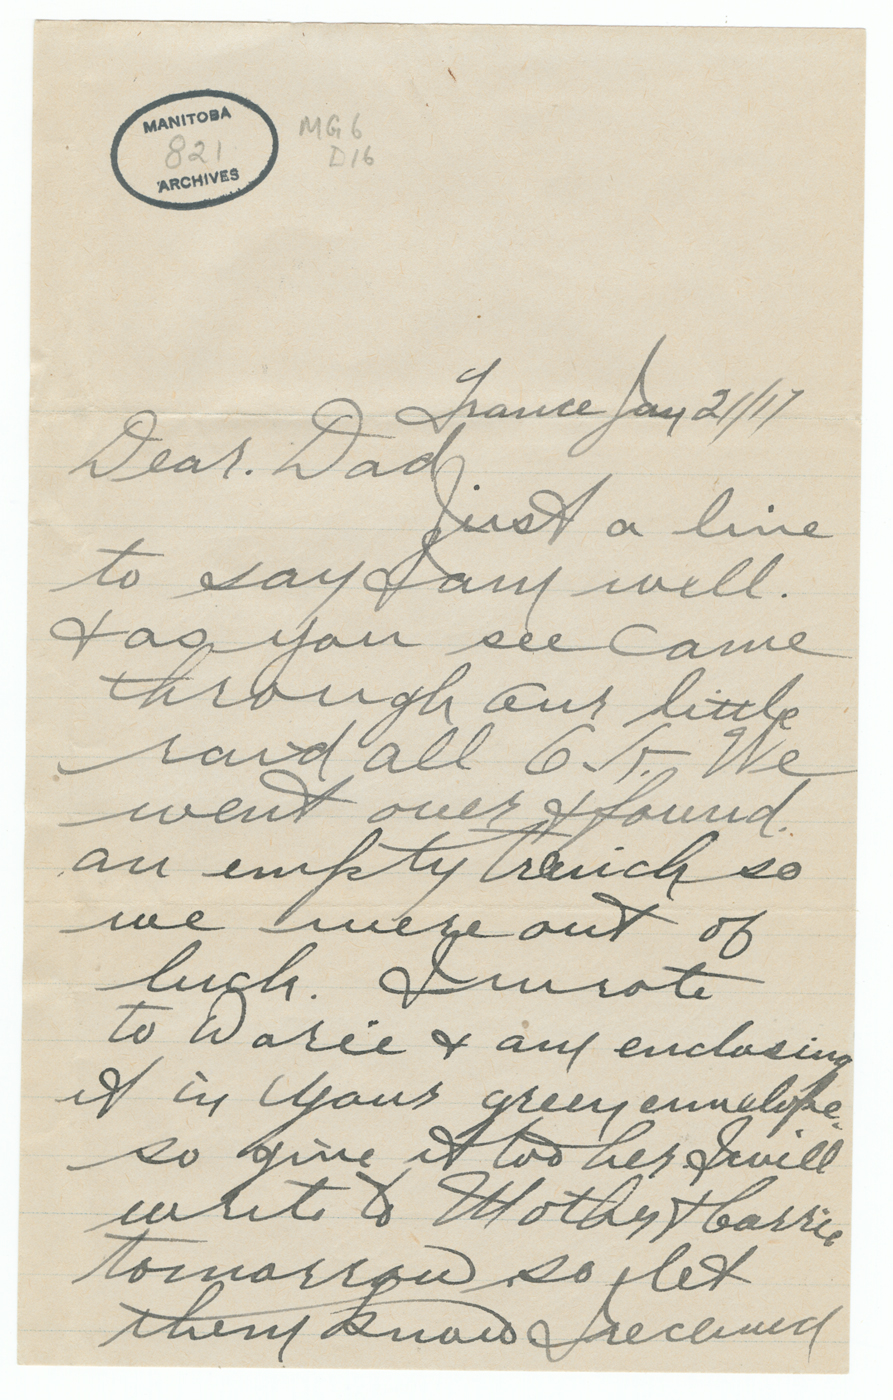 MANITOBA
821
ARCHIVES
MG6
D16
France Jan 21/17
Dear. Dad
Just a line
to say I am well.
& as you see came
through our little
raid all O.K. We
went over & found.
an empty trench so
we were out of
luck. I wrote
to Dorie & am enclosing
it in your green envelope.
so give it too her I will
write to Mother & Carrie
tomorrow so let
them know I received